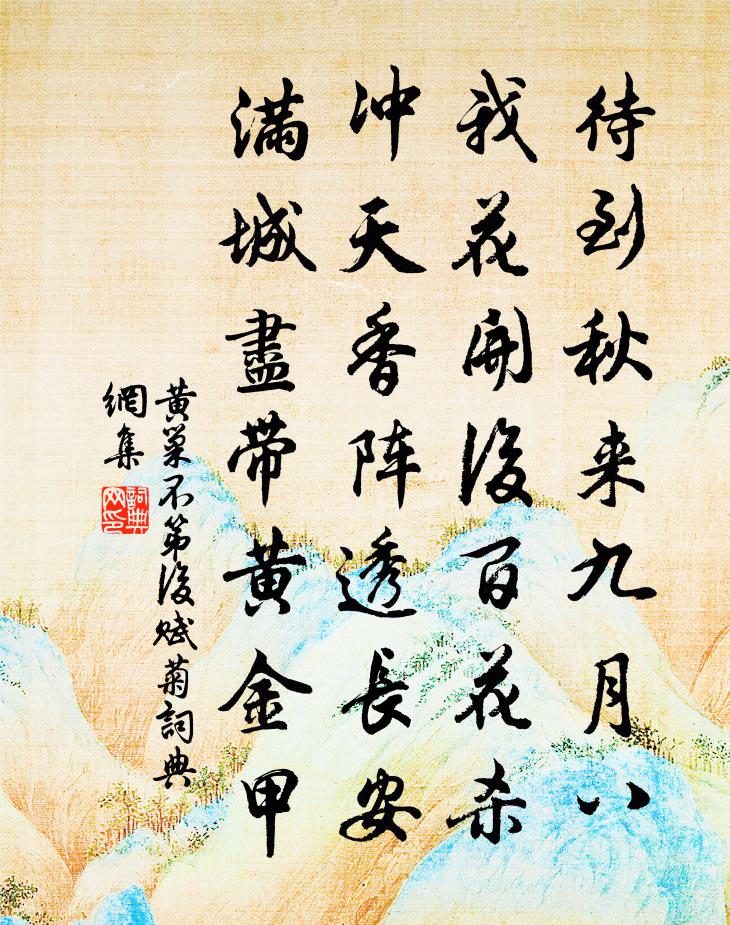 待到秋来九月八
我花開後百花杀
冲天香阵透長安
滿城盡带黄金甲
黄巢不第後赋菊詞典
網集
詞典
网印